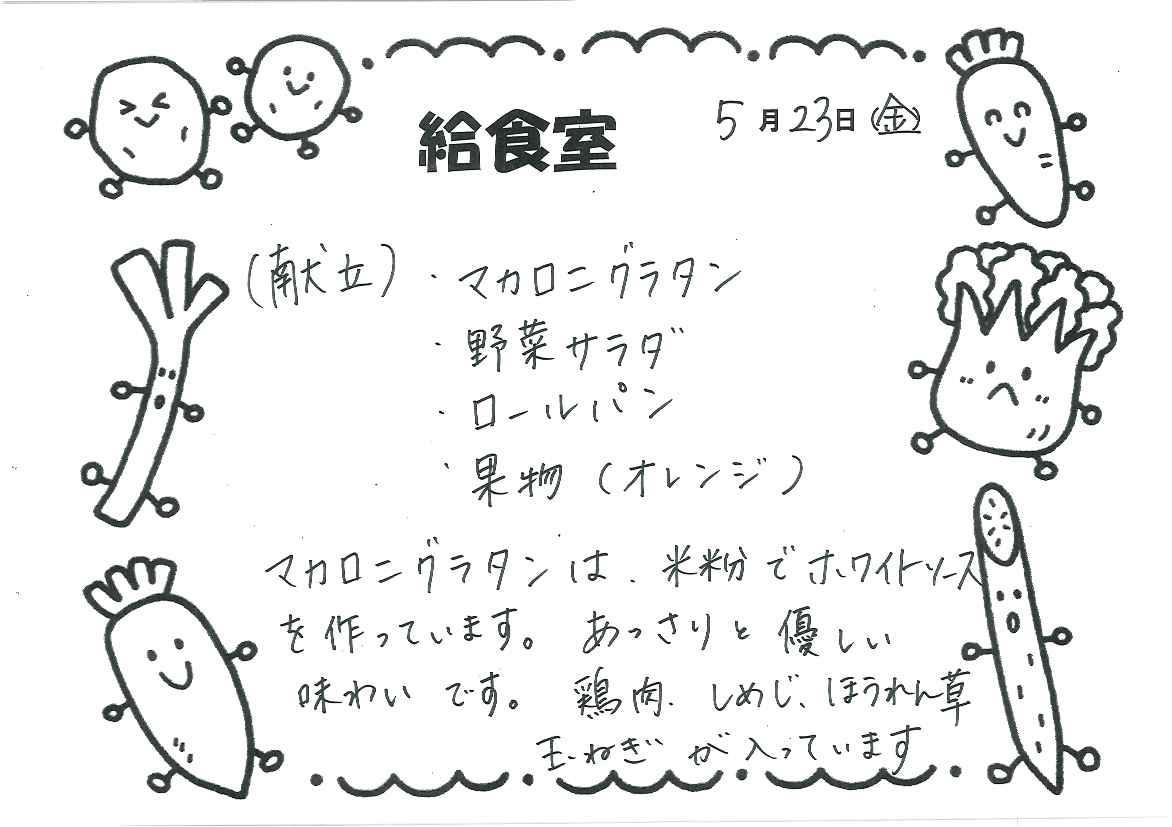 給食室
5月23日(金)
(献立)・マカロニグラタン
・野菜サラダ
・ロールパン
・果物(オレンジ)
マカロニグラタンは、米粉でホワイトソース
を作っています。あっさりと優しい
味わいです。鶏肉、しめじ、ほうれん草
玉ねぎが入っています